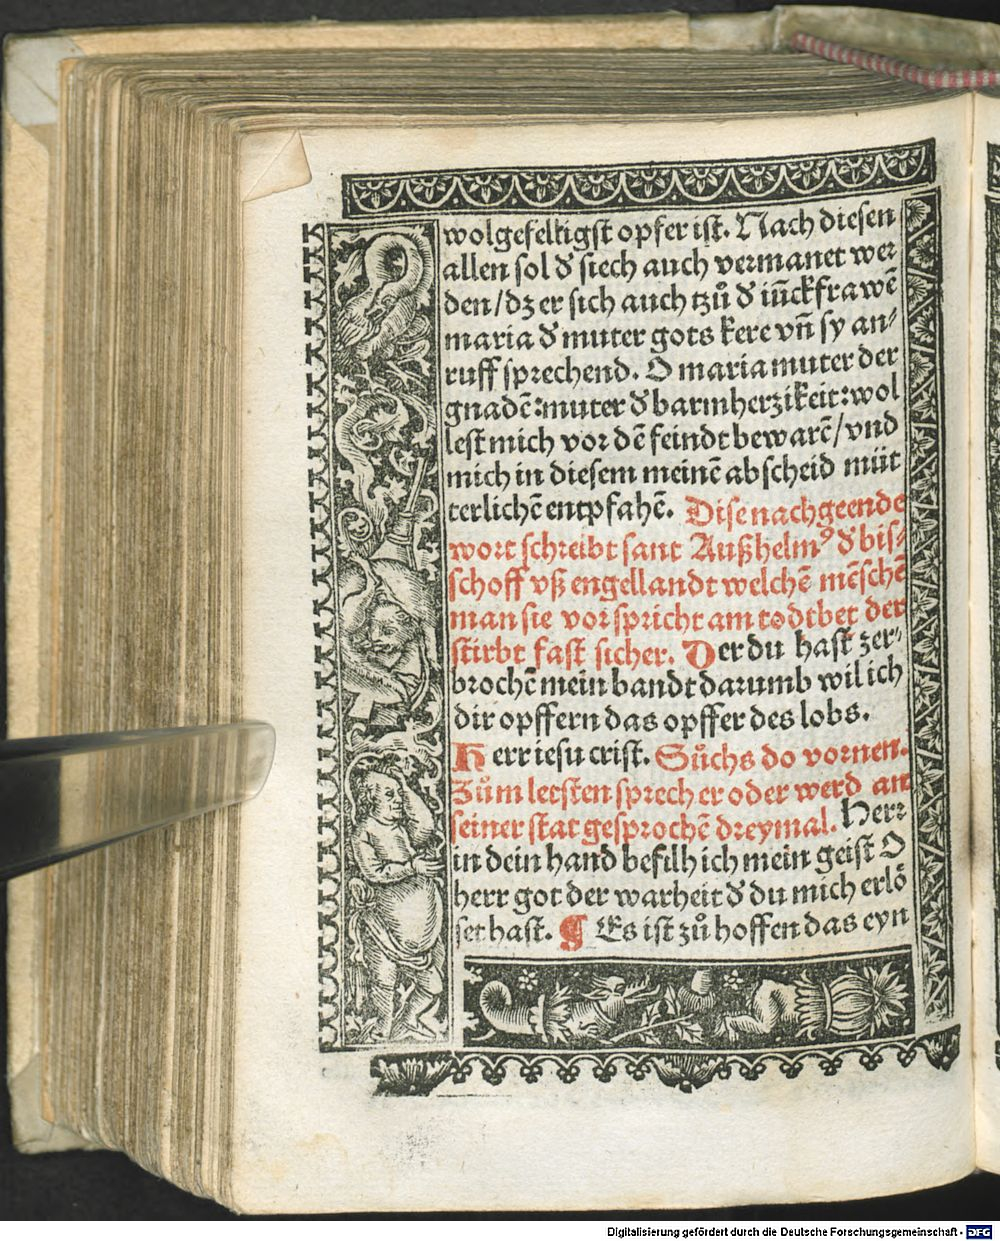 wolgefelligst opfer ist. Nach diesen
allen sol đ siech auch vermanet wer
den/dz er sich auch tzů đ iūckfrawē
maria đ muter gots kere vn̄ sy an⸗
ruff sprechend. O maria muter der
gnadē:muter đ barmherzikeit:wol
lest mich vor dē feindt bewarē/vnd
mich in diesem meinē abscheid müt
terlichē entpfahē. Dise nachgeende
wort schreibt sant Außhelmꝰ đ bis⸗
schoff vß engellandt welchē mēschē
man sie vorspricht am todtbet der
stirbt fast sicher. Der du hast zer⸗
brochē mein bandt darumb wil ich
dir opffern das opffer des lobs.
Herr iesu crist. Sůchs do vornen.
Zům letsten sprech er oder werd an
seiner stat gesprochē dreymal. Herr
in dein hand befilh ich mein geist O
herr got der warheit đ du mich erlö
set hast. ¶ Es ist zů hoffen das eyn
Digitalisierung gefördert durch die Deutsche Forschungsgemeinschaft - DFG